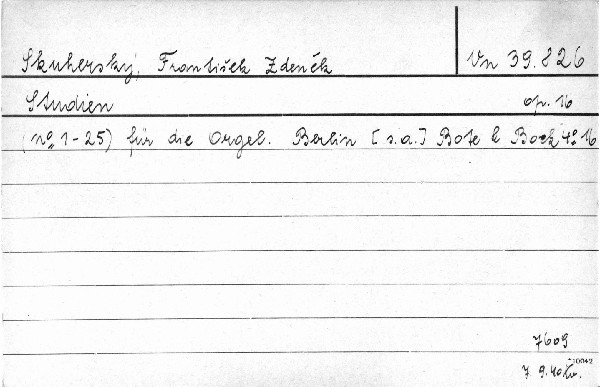 Skuherský, František Zdeněk Vn 39.826
Studien op. 16
(no 1-25) für die Orgel. Berlin [s.a.] Bote & Bock 4° 16
7609
7 9.40